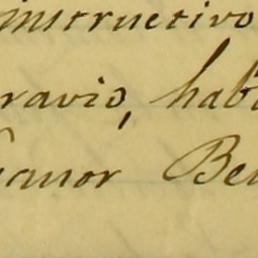 instructivo
ravio, hab
canor Be